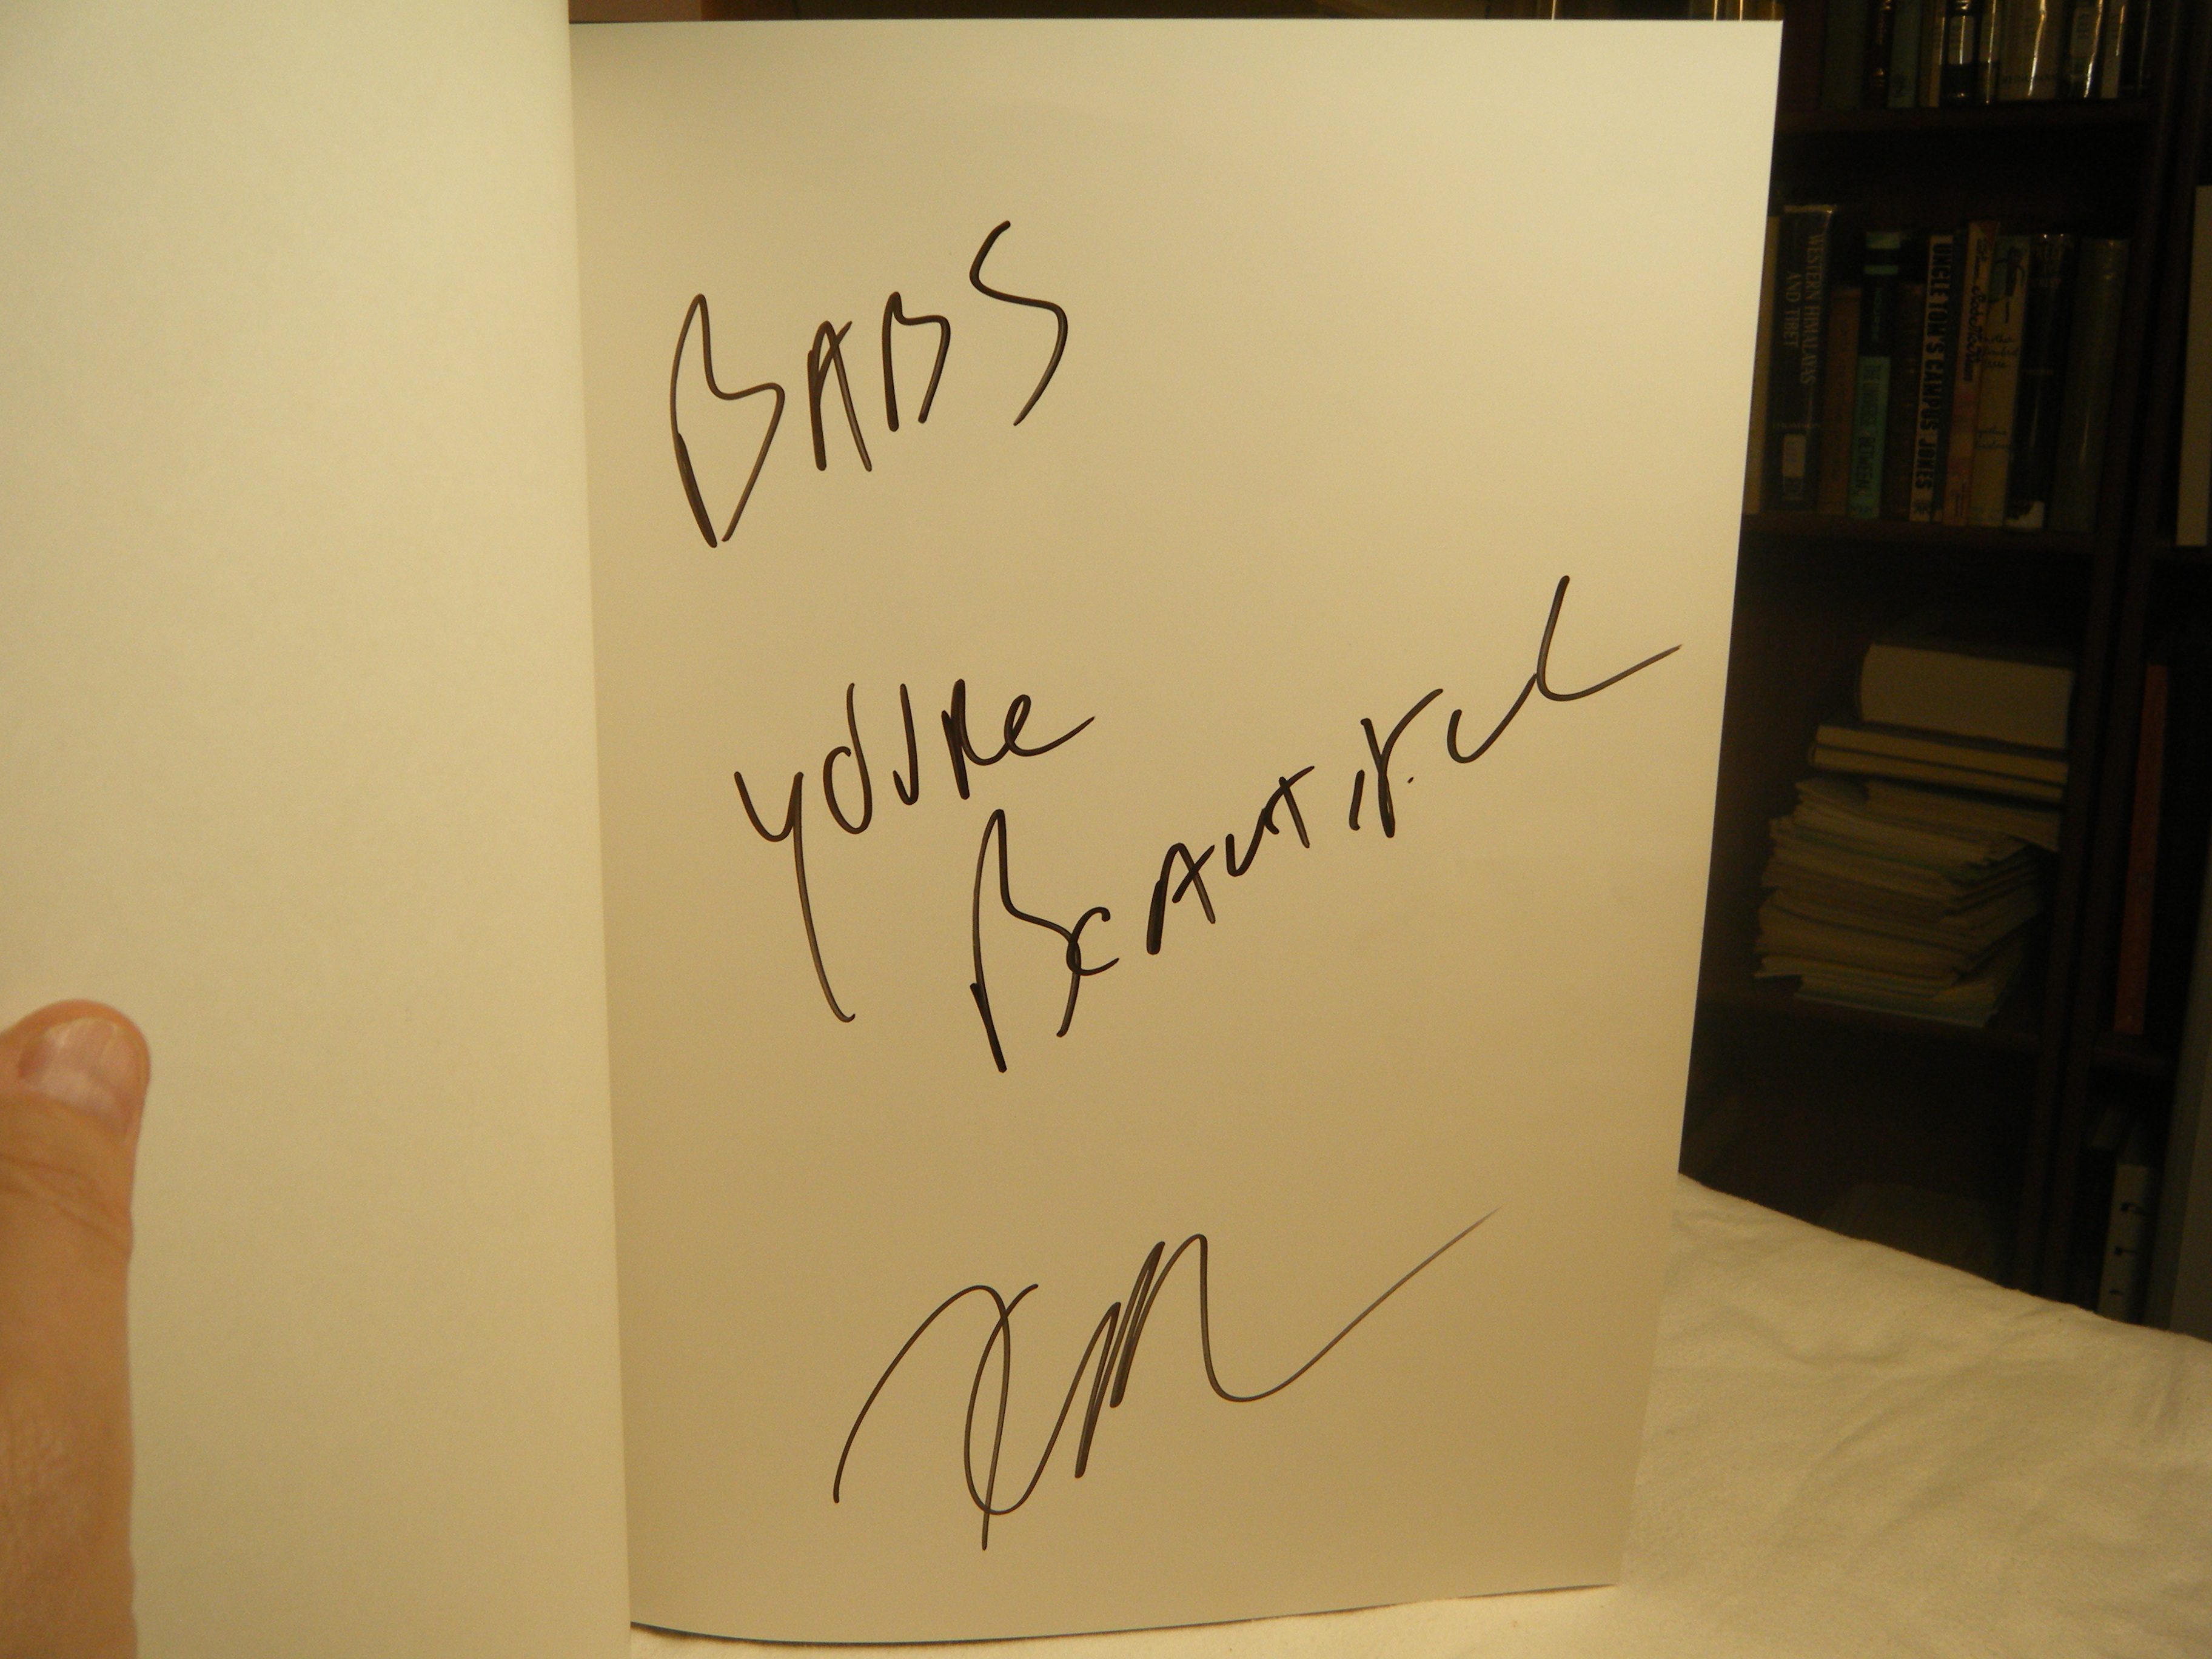 BABS
YOURE
BEAUTIFUL
WESTERN HIMALAYAS
AND TIBET
UNCLE TOM'S CAMPUS JONES